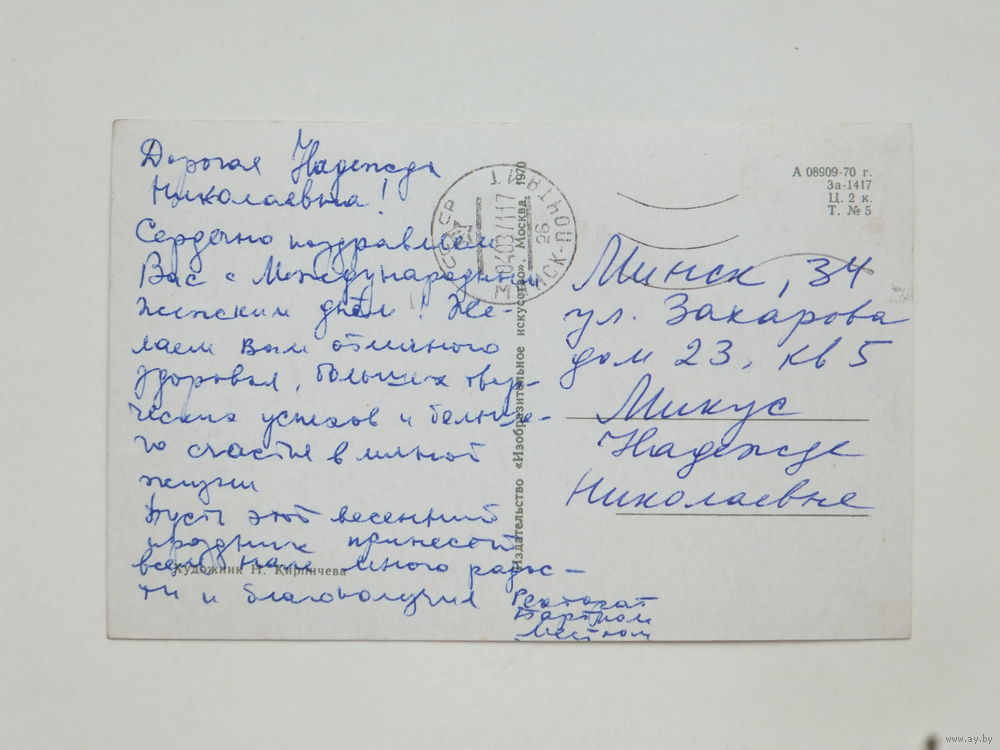 Дорогая Надежда
Николаевна!
Сердечно поздравляем
Вас с Международным
женским днем! Же-
лаем Вам отличного
здоровья, больших твор-
ческих успехов и больше-
го счастья в личной
жизни
Пусть этот весенний
праздник принесет
всем нам много радос-
ти и благополучия
Ректорат
Партком
Местком
Художник Н. Кирпичева
Издательство «Изобразительное искусство». Москва. 1970
СССР
ПОЧТАМТ
26
А 08909-70 г.
За-1417
Ц. 2 к.
Т. № 5
Минск, 34
ул. Захарова
дом 23, кв 5
Микус
Надежде
Николаевне
www.ay.by